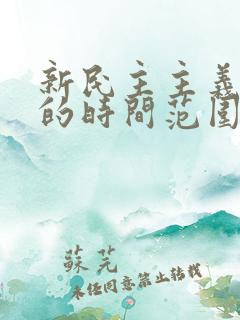 新民主主義
的時間范圍
蘇芫
未任同意禁止轉載